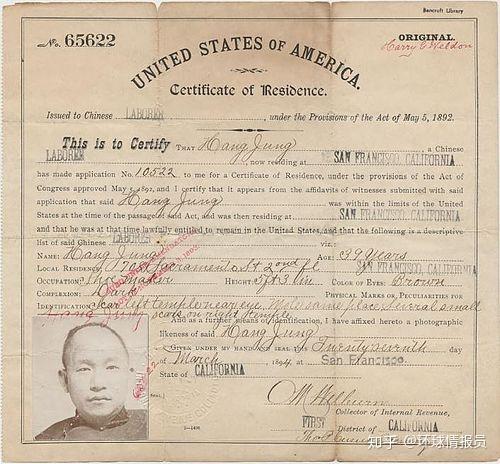 Bancroft Library
No. 65622
ORIGINAL.
Harry C Weldon
UNITED STATES OF AMERICA.
Certificate of Residence.
Issued to Chinese LABORER, under the Provisions of the Act of May 5, 1892.
This is to Certify THAT Hang Jung, a Chinese
LABORER, now residing at SAN FRANCISCO, CALIFORNIA
has made application No. 10522 to me for a Certificate of Residence, under the provisions of the Act of
Congress approved May 5, 1892, and I certify that it appears from the affidavits of witnesses submitted with said
application that said Hang Jung was within the limits of the United
States at the time of the passage of said Act, and was then residing at SAN FRANCISCO, CALIFORNIA
and that he was at that time lawfully entitled to remain in the United States, and that the following is a descriptive
list of said Chinese LABORER viz.:
NAME: Hang Jung AGE: 39 Years
LOCAL RESIDENCE: Sacramento St 2nd fl SAN FRANCISCO, CALIFORNIA
OCCUPATION: Shoemaker HEIGHT: 5 ft 3 in COLOR OF EYES: Brown
COMPLEXION: Dark PHYSICAL MARKS OR PECULIARITIES FOR
IDENTIFICATION: Scar left temple near eye. Mole same place. Several small
scars on right temple
Hang Jung
And as a further means of identification, I have affixed hereto a photographic
likeness of said Hang Jung
GIVEN UNDER MY HAND AND SEAL this Twenty seventh day
of March 1894, at San Francisco,
State of CALIFORNIA
O M Welburn
Collector of Internal Revenue,
FIRST District of CALIFORNIA
知乎 @环球情报员